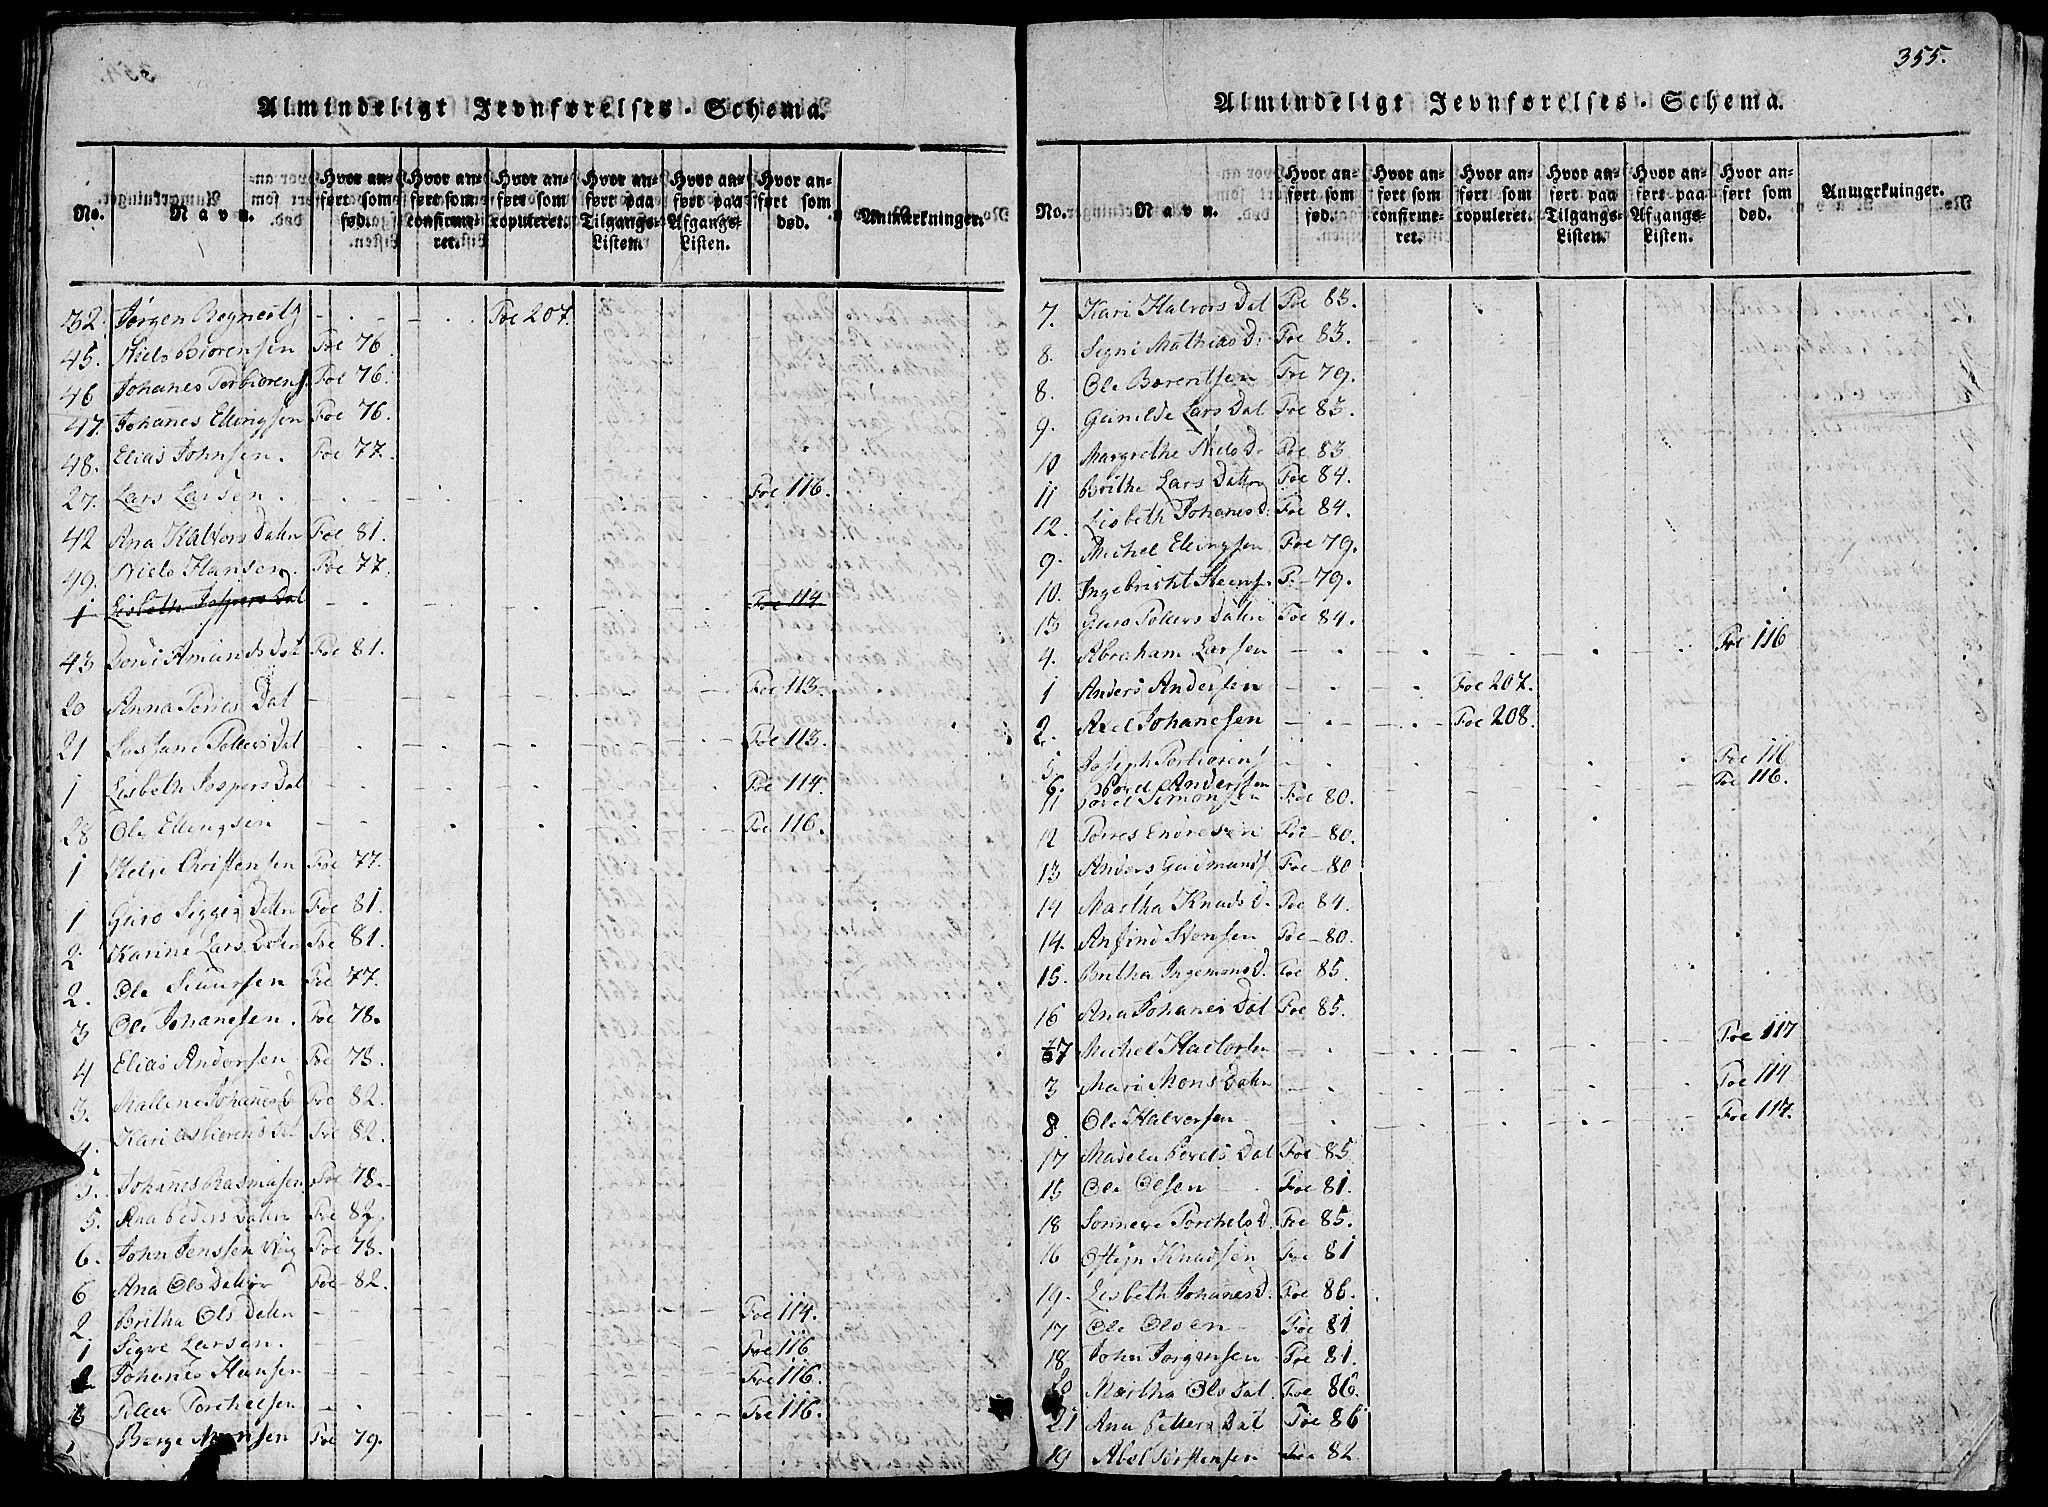 355.
Almindeligt Jevnførelses-Schema.
No. Navn. Hvor anført som fød. Hvor anført som confirmeret. Hvor anført som copuleret. Hvor anført paa Tilgangs-Listen. Hvor anført paa Afgangs-Listen. Hvor anført som død. Anmærkninger.
32. Jørgen Foe 207.
45. Niels Biørensen Foe 76
46 Johanes Torbiørens. Foe 76.
47. Johanes Ellingsen Foe 76.
48. Elias Johnsen. Foe 77.
27. Lars Larsen. Foe 116.
42 Ana Halvors Daten Foe 81.
49. Niels Hansen. Foe 77.
1 Lisbeth Jespers Dat Foe 114
43 Amunds Dat Foe 81.
20 Anna Torres Dat Foe 113.
21 Sussane Petters Dat Foe 113.
1 Lisbeth Jespers Dat Foe 114.
28 Ole Ellingsen Foe 116.
1 Helje Christensen Foe 77.
1 Guro Sigges Daten Foe 81.
2. Karine Lars Daten Foe 81.
2. Ole Siuursen Foe 77.
3 Ole Johanesen. Foe 78.
4 Elias Andersen Foe 78.
3. Mallene Johanes D Foe 82.
4. Kari Foe 82.
5. Johanes Rasmusen Foe 78.
5. Ana Peders Daten Foe 82.
6. John Jenssen Foe 78.
6 Ana Ols Datter Foe 82.
2 Britha Ols Daten Foe 114.
1 Sigve Larsen. Foe 116
2 Johanes Hansen Foe 116.
3 Peder Torchelsen Foe 116.
7 Børge Monsen Foe 79.
Almindeligt Jevnførelses-Schema.
No. Navn. Hvor anført som fød. Hvor anført som confirmeret. Hvor anført som copuleret. Hvor anført paa Tilgangs-Listen. Hvor anført paa Afgangs-Listen. Hvor anført som død. Anmærkninger.
7. Kari Halvors Dat Foe 83.
8. Signi Mathias D. Foe 83.
8. Ole Børentsen Foe 79.
9. Gunilde Lars Dat Foe 83.
10 Margrethe Niels D. Foe 83
11 Brithe Lars Datter Foe 84.
12. Lisbeth Johanes D. Foe 84.
9. Michel Ellingsen Foe 79.
10. Ingebricht Steens. F. 79.
13 Guro Petters Daten Foe 84.
4. Abraham Larsen Foe 116
1 Anders Andersen Foe 207.
2. Axel Johanesen Foe 208.
5 Joseph Torbiørens. Foe 116
6. Povel Andersen Foe 116.
11 Povel Simonsen Foe 80.
12 Torres Endresen Foe 80.
13 Anders Gudmunds. Foe 80
14 Martha Knuds D. Foe 84.
14. Anfind Svensen Foe 80.
15. Britha Ingemons D. Foe 85.
16 Ana Johanes Dat Foe 85.
7 Michel Halvorsen Foe 117
3 Mari Mons Daten Foe 114
8. Ole Halvorsen Foe 117.
17 Madele Povels Dat Foe 85.
15 Ole Olsen Foe 81.
18 Sonneve Torchels D. Foe 85.
16 Østen Knudsen Foe 81
19. Lisbeth Johanes D. Foe 86.
17 Ole Olsen Foe 81
18 John Jørgensen Foe 81.
20 Martha Ols Dat. Foe 86.
21 Ana Petters Dat Foe 86
19 Abel Torstensen Foe 82